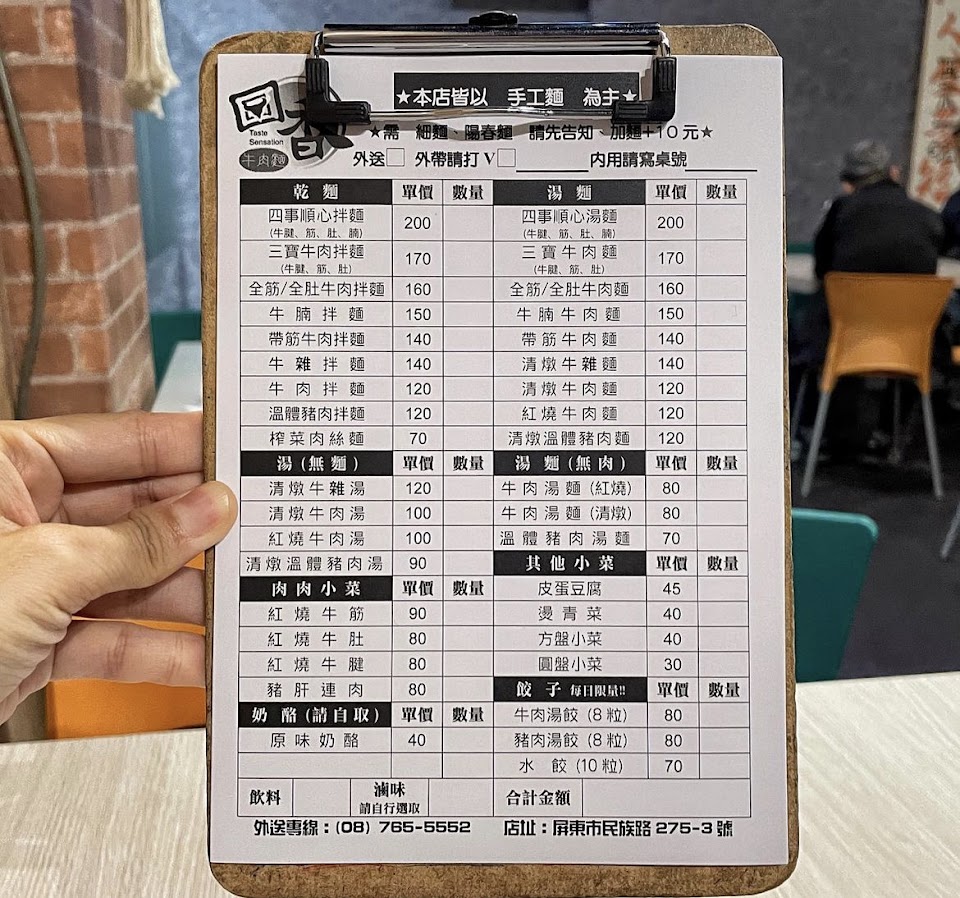 国香
Taste
Sensation
牛肉麵
★本店皆以 手工麵 為主★
★需 細麵、陽春麵 請先告知、加麵+10元★
外送□ 外帶請打V□ 內用請寫桌號
乾麵 單價 數量 湯麵 單價 數量
四事順心拌麵 200 四事順心湯麵 200
(牛腱、筋、肚、腩) (牛腱、筋、肚、腩)
三寶牛肉拌麵 170 三寶牛肉麵 170
(牛腱、筋、肚) (牛腱、筋、肚)
全筋/全肚牛肉拌麵 160 全筋/全肚牛肉麵 160
牛腩拌麵 150 牛腩牛肉麵 150
帶筋牛肉拌麵 140 帶筋牛肉麵 140
牛雜拌麵 140 清燉牛雜麵 140
牛肉拌麵 120 清燉牛肉麵 120
溫體豬肉拌麵 120 紅燒牛肉麵 120
榨菜肉絲麵 70 清燉溫體豬肉麵 120
湯(無麵) 單價 數量 湯麵(無肉) 單價 數量
清燉牛雜湯 120 牛肉湯麵(紅燒) 80
清燉牛肉湯 100 牛肉湯麵(清燉) 80
紅燒牛肉湯 100 溫體豬肉湯麵 70
清燉溫體豬肉湯 90 其他小菜 單價 數量
肉肉小菜 單價 數量 皮蛋豆腐 45
紅燒牛筋 90 燙青菜 40
紅燒牛肚 80 方盤小菜 40
紅燒牛腱 80 圓盤小菜 30
豬肝連肉 80 餃子 每日限量!! 單價 數量
奶酪(請自取) 單價 數量 牛肉湯餃(8粒) 80
原味奶酪 40 豬肉湯餃(8粒) 80
水餃(10粒) 70
飲料 滷味 合計金額
請自行選取
外送專線：(08) 765-5552 店址：屏東市民族路275-3號